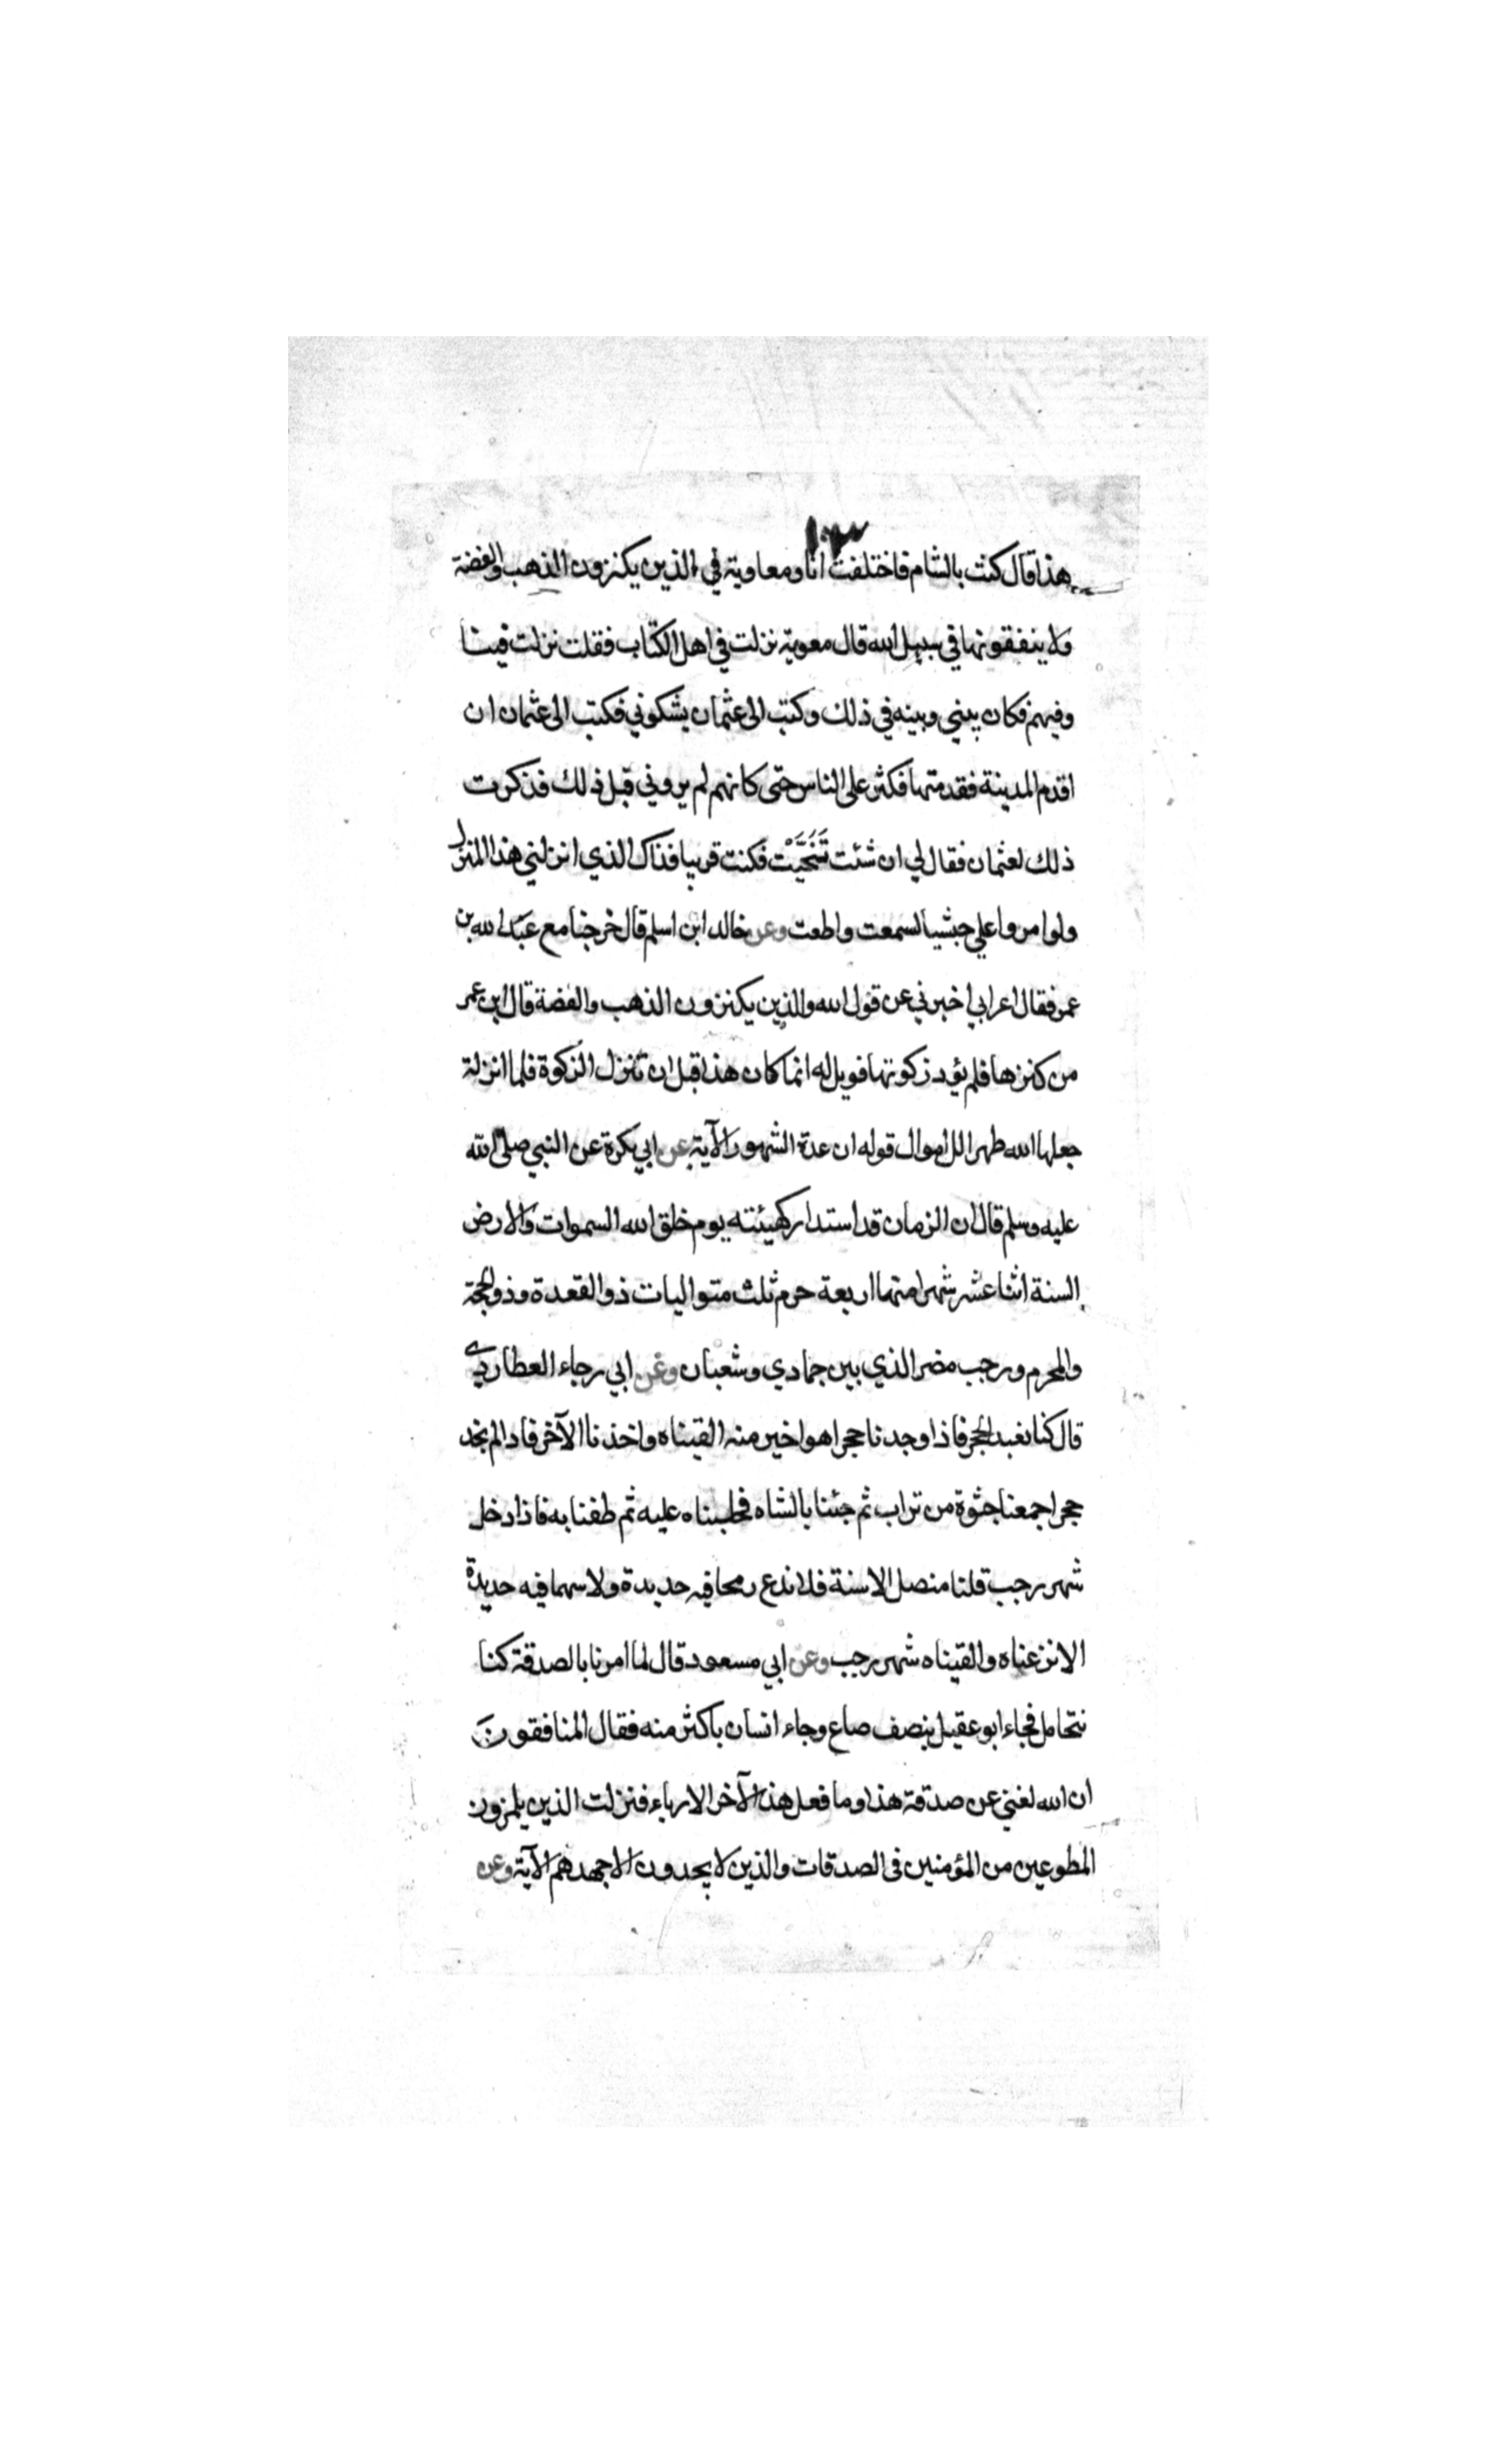 ١٠٣
هذا قال كنت بالشام فاختلفت انا ومعاوية في الذين يكنزون الذهب والفضة
ولا ينفقونها في سبيل الله قال معوية نزلت في اهل الكتاب فقلت نزلت فينا
وفيهم فكان بيني وبينه في ذلك وكتب الى عثمان يشكوني فكتب الى عثمان ان
اقدم المدينة فقدمتها فكثر على الناس حتى كانهم لم يروني قبل ذلك فذكرت
ذلك لعثمان فقال لي ان شئت تَنَحَّيْت فكنت قريبا فذاك الذي انزلني هذا المنزل
ولوا مروا علي حبشيا لسمعت واطعت وعن خالد ابن اسلم قال خرجنا مع عبد الله بن
عمر فقال اعرابي اخبرني عن قول الله والذين يكنزون الذهب والفضة قال ابن عمر
من كنزها فلم يؤد زكوتها فويل له انما كان هذا قبل ان تنزل الزكوة فلما انزلة
جعلها الله طهرا للاموال قوله ان عدة الشهور الآية عن ابي بكرة عن النبي صلى الله
عليه وسلم قال ان الزمان قد استدار كهيئته يوم خلق الله السموات والارض
السنة اثنا عشر شهرا منها اربعة حرم ثلث متواليات ذو القعدة وذو الحجة
والمحرم ورجب مضر الذي بين جمادي وشعبان وعن ابي رجاء العطاردي
قال كنا نعبد الحجر فاذا وجدنا حجرا هو اخير منه القيناه واخذنا الآخر فاذا لم نجد
حجرا جمعنا جثوة من تراب ثم جئنا بالشاه فحلبناه عليه ثم طفنا به فاذا دخل
شهر رجب قلنا منصل الاسنة فلا ندع رمحا فيه حديدة ولا سهما فيه حديدة
الا نزعناه والقيناه شهر رجب وعن ابي مسعود قال لما امرنا بالصدقة كنا
نتحامل فجاء ابو عقيل بنصف صاع وجاء انسان باكثر منه فقال المنافقون
ان الله لغني عن صدقة هذا وما فعل هذا الآخر الا رياء فنزلت الذين يلمزون
المطوعين من المؤمنين في الصدقات والذين لا يجدون الا جهدهم الآية وعن